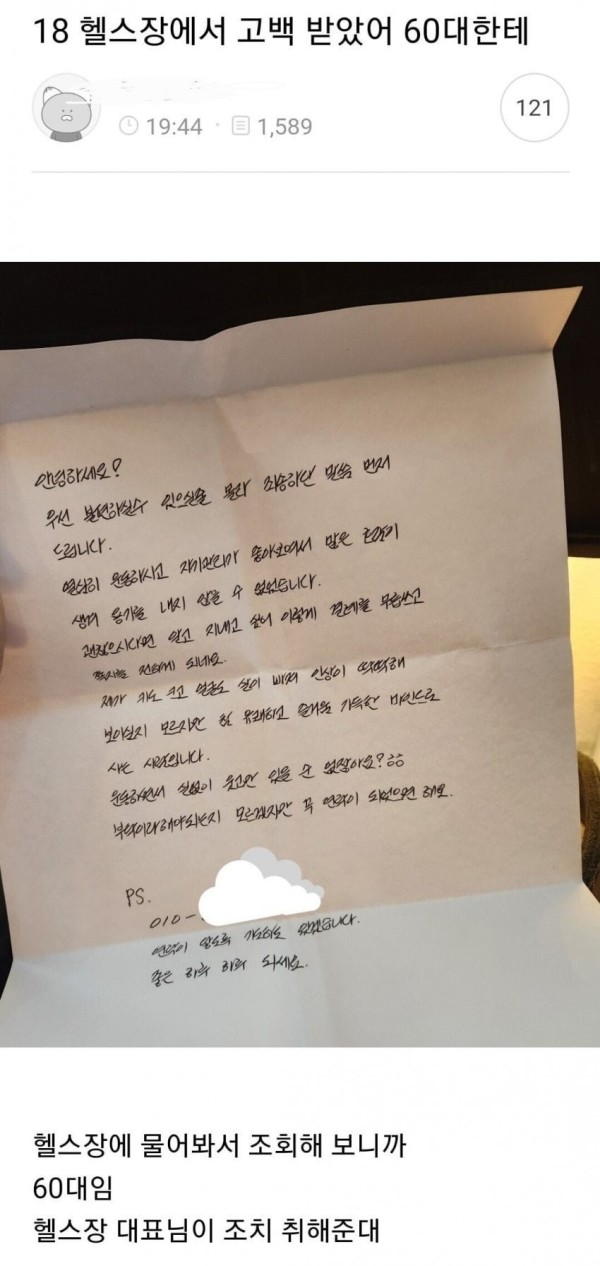 18 헬스장에서 고백 받았어 60대한테
19:44 1,589
121
안녕하세요?
우선 불편하실수 있으실줄 몰라 죄송하단 말씀 먼저
드립니다.
열심히 운동하시고 자기관리가 좋아보여서 많은
생겨 용기를 내지 않을 수 없었습니다.
괜찮으시다면 알고 지내고 싶어 이렇게 결례를 무릅쓰고
쪽지를 전하게 되네요.
제가 키도 크고 얼굴도 살이 빠져 인상이 딱딱해
보이실지 모르지만 참 유쾌하고 즐거움 가득한 마인드로
사는 사람입니다.
운동하면서 실없이 웃고만 있을 순 없잖아요? ㅎㅎ
부탁이라해야되는지 모르겠지만 꼭 연락이 되었으면 해요.
PS.
010-
연락이 오도록 기도하고 있겠습니다.
좋은 하루 하루 되세요.
헬스장에 물어봐서 조회해 보니까
60대임
헬스장 대표님이 조치 취해준대